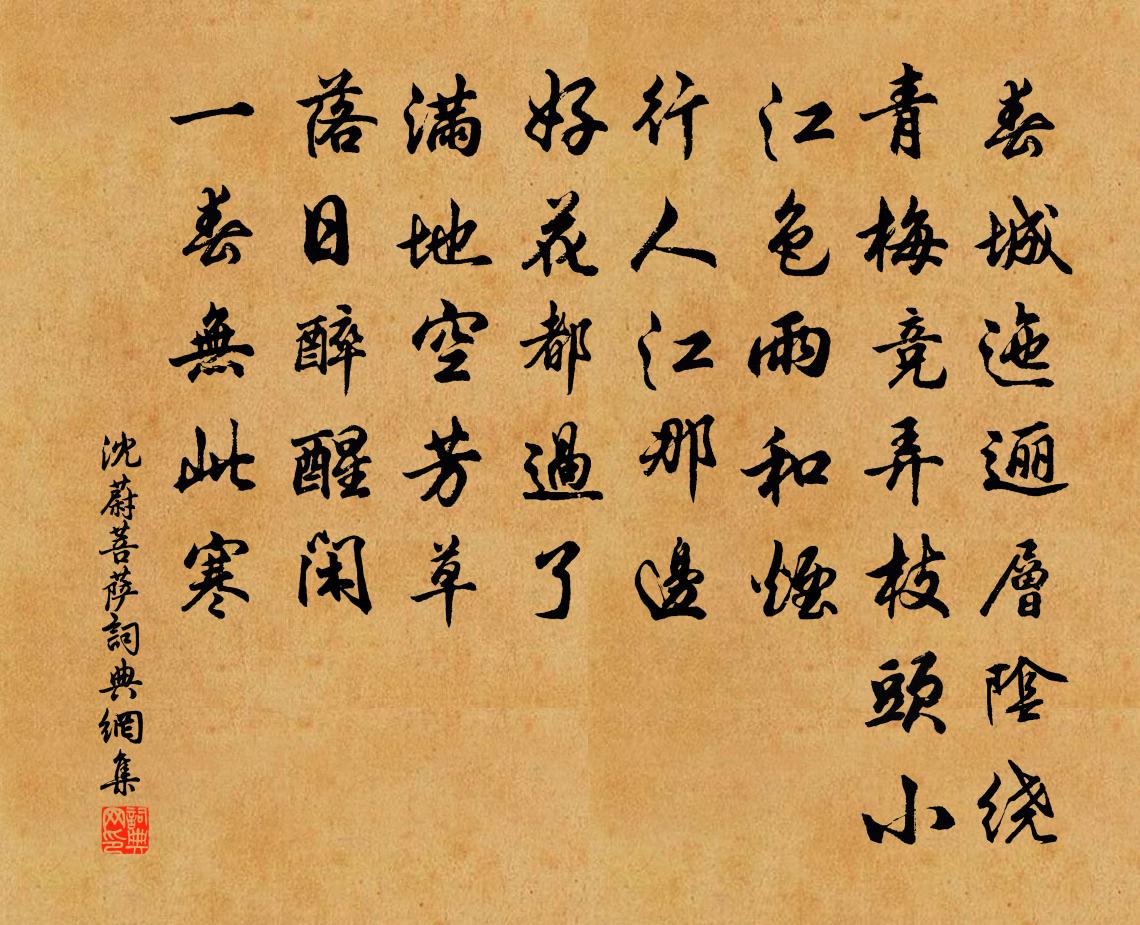 春城迤逦層陰绕
青梅竞弄枝頭小
江色雨和煙
行人江那邊
好花都過了
滿地空芳草
落日醉醒閑
一春無此寒
沈蔚菩萨詞典網集
詞典网印